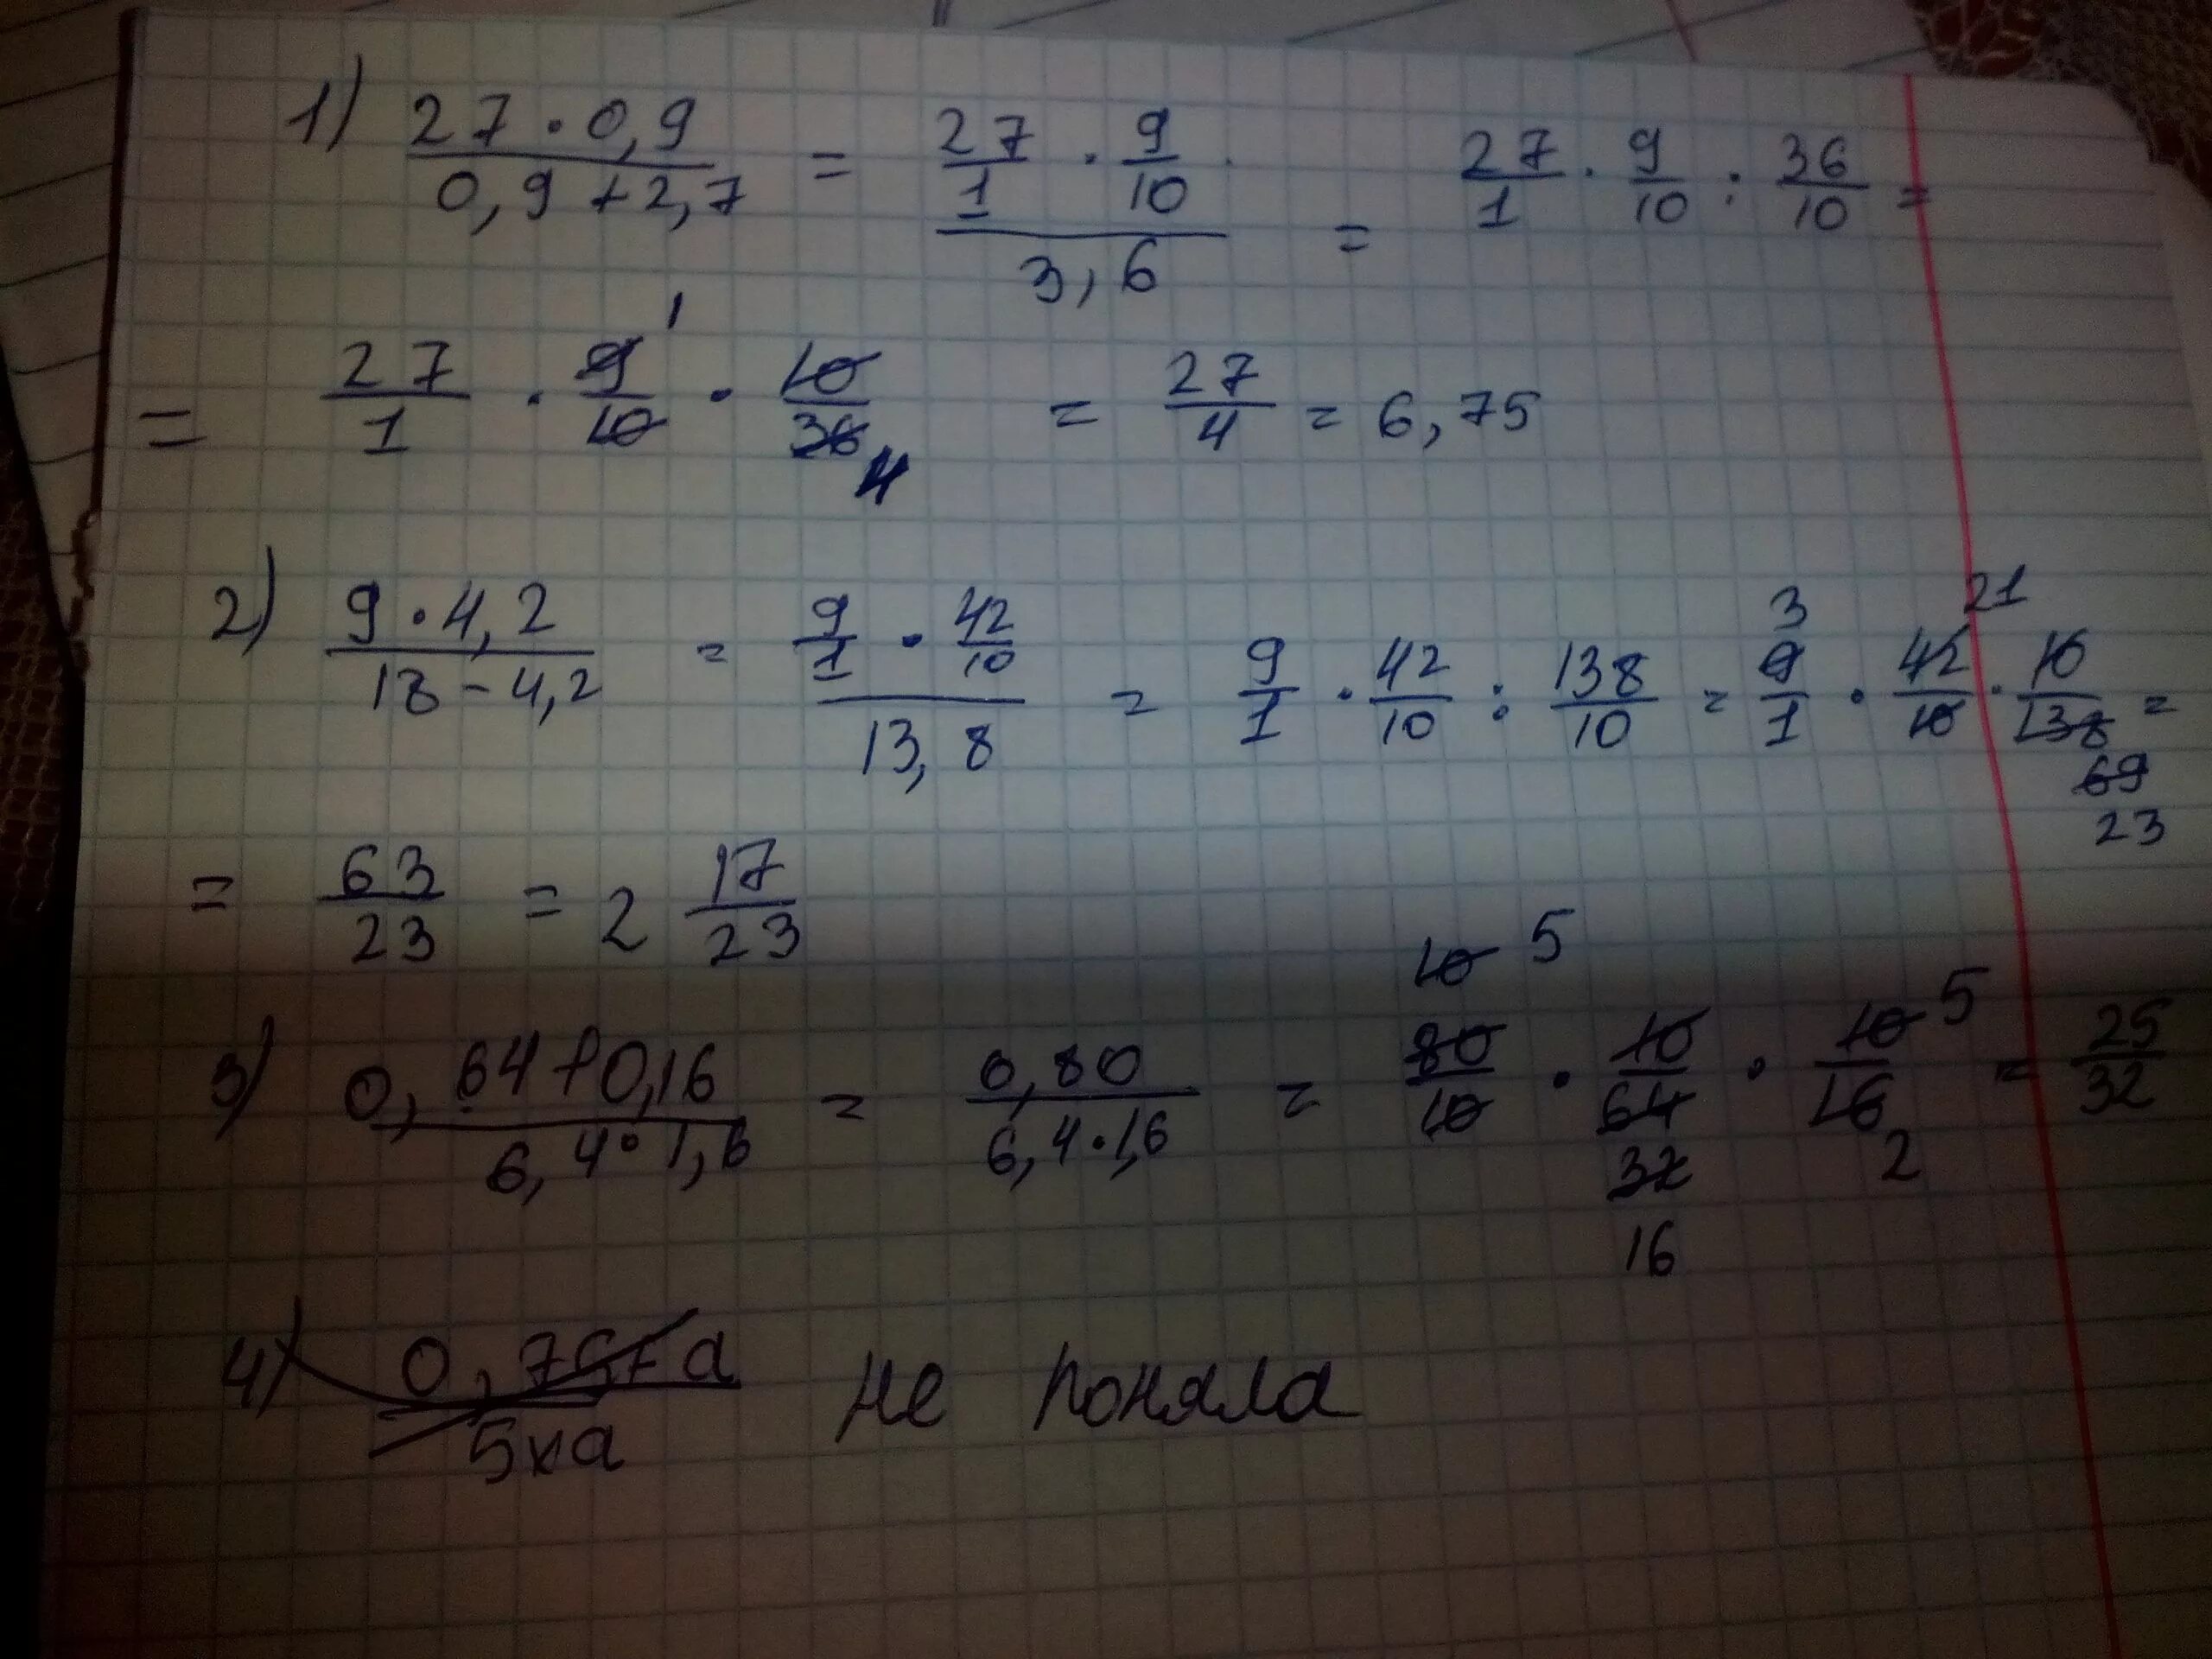 1) 27 · 0,9 / 0,9 + 2,7 = 27/1 · 9/10 / 3,6 = 27/1 · 9/10 : 36/10 =
= 27/1 · 9/10 1 · 10/36 4 = 27/4 = 6,75
2) 9 · 4,2 / 18 - 4,2 = 9/1 · 42/10 / 13,8 = 9/1 · 42/10 : 138/10 = 3 9/1 · 42/10 21 · 10/138 69 23 =
= 63/23 = 2 17/23
3) 0,64 + 0,16 / 6,4 · 1,6 = 0,80 / 6,4 · 1,6 = 10 5 80/10 · 10/64 32 16 · 10/16 5 2 = 25/32
4) 5xa не поняла